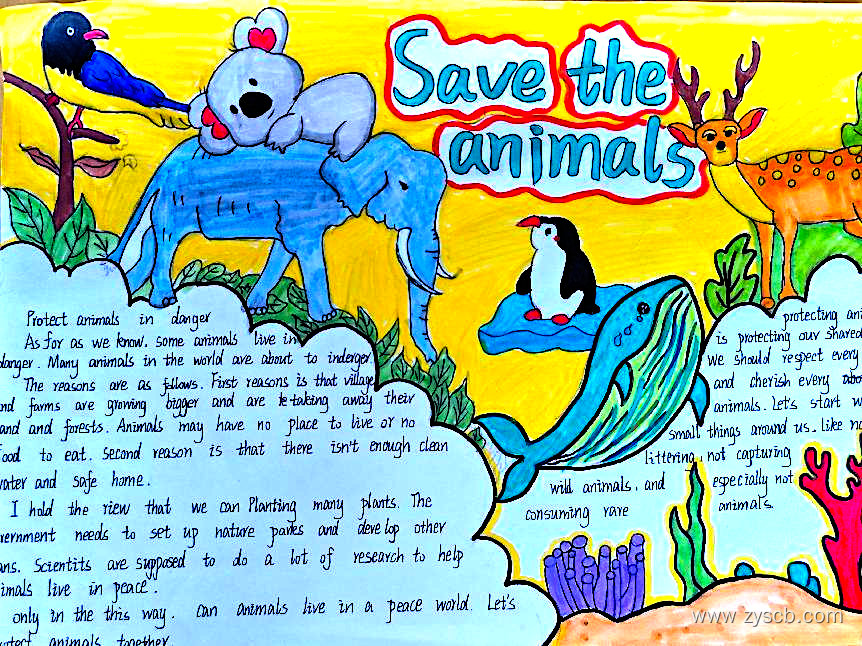 Save the
animals
Protect animals in danger
As for as we know, some animals live in
danger. Many animals in the world are about to inderger
The reasons are as follows. First reasons is that village
and farms are growing bigger and are te taking away their
land and forests. Animals may have no place to live or no
food to eat. Second reason is that there isn't enough clean
water and safe home.
I hold the view that we can Planting many plants. The
vernment needs to set up nature parks and develop other
ans. Scientits are supposed to do a lot of research to help
imals live in peace.
only in the this way. can animals live in a peace world. Let's
otect animals together.
protecting ani
is protecting our shared
We should respect every
and cherish every
animals. Let's start w
small things around us. like no
littering, not capturing
wild animals, and especially not
consuming rare animals.
www.zyscb.com